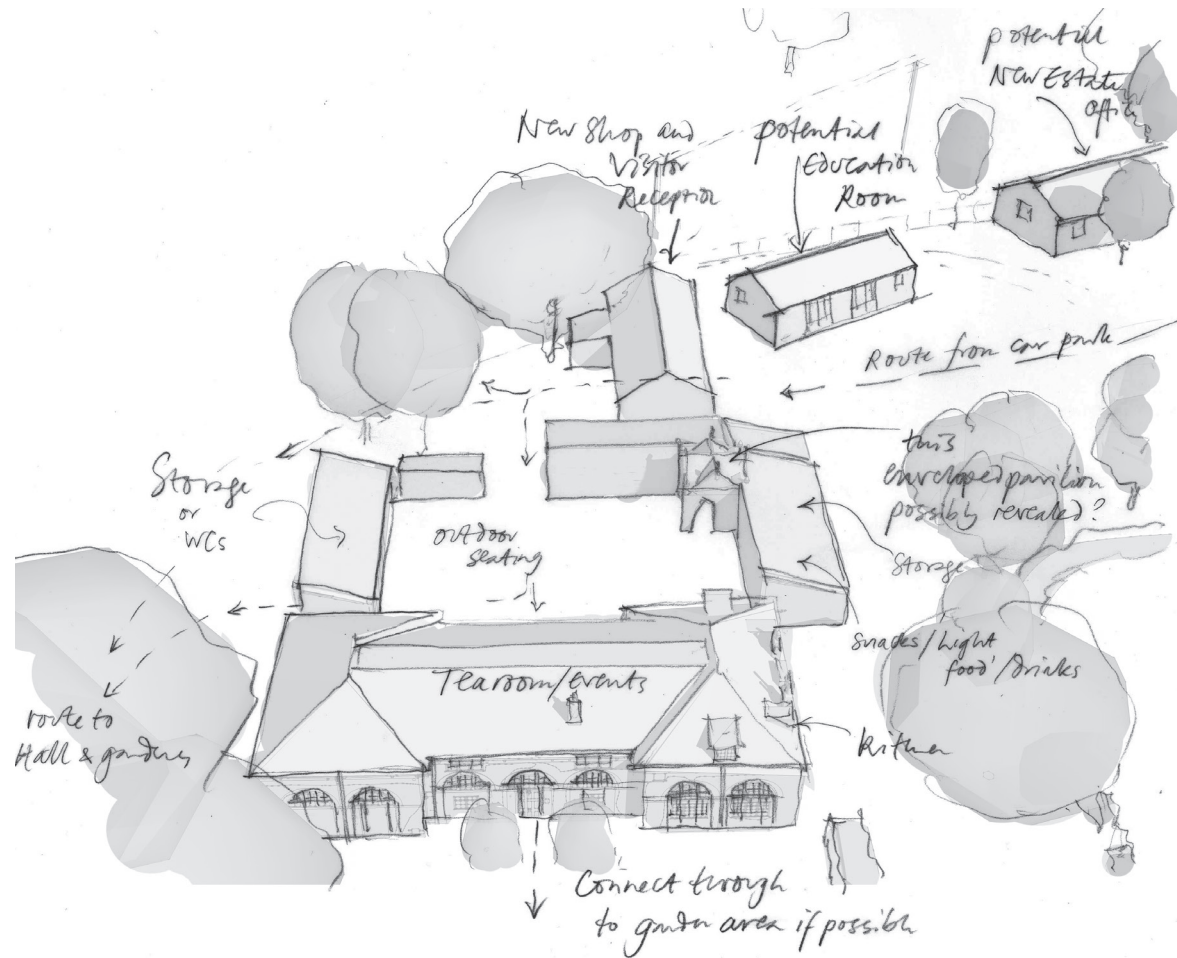 potential
New Estate
Office
New Shop and
Visitor
Reception
potential
Education
Room
Route from car park
this
enveloped pavilion
possibly revealed?
Storage
or
WCs
outdoor
seating
Storage
snacks/light
food/drinks
Tearoom/events
kitchen
route to
Hall & gardens
Connect through
to garden area if possible